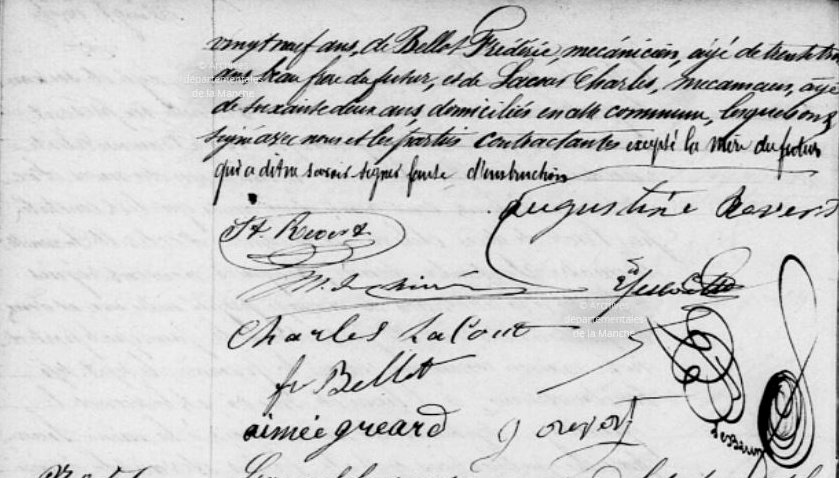 vingt neuf ans, de Bellot Frédéric, mécanicien, âgé de trente
beau frère du futur, et de Charles, mécanicien, âgé
de soixante deux ans, domiciliés en cette commune, lesquels ont
signé avec nous et les parties contractantes excepté la mère du futur
qui a dit ne savoir signer faute d'instruction
Augustine Revert
St Revert
Charles LaCour
fr Bellot
aimée greard
J revert
© Archives
départementales
de la Manche
© Archives
départementales
de la Manche